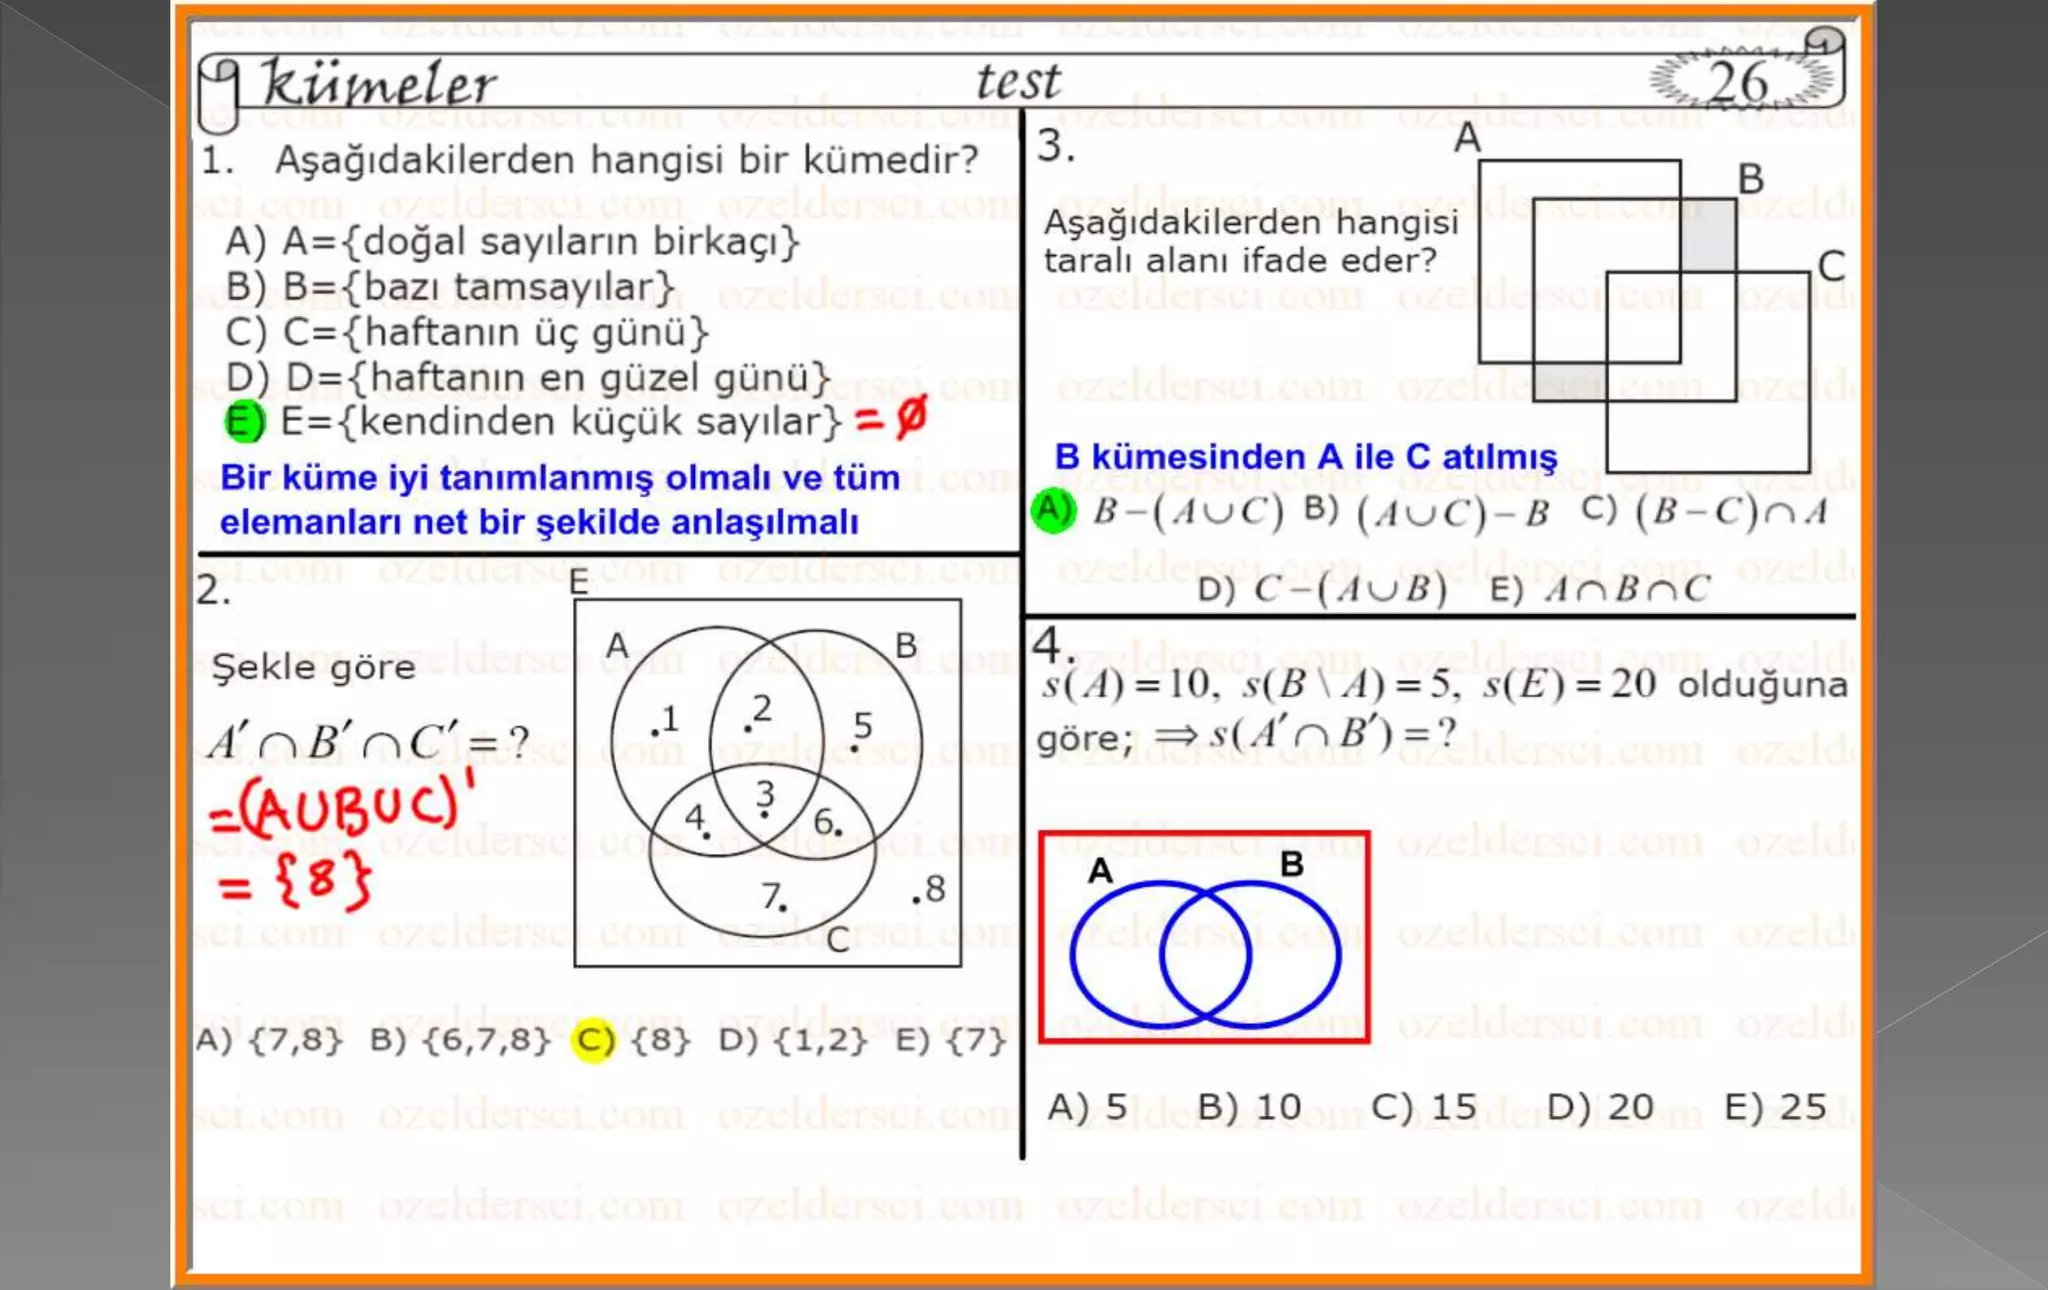 kümeler test 26
1. Aşağıdakilerden hangisi bir kümedir?
A) A={doğal sayıların birkaçı}
B) B={bazı tamsayılar}
C) C={haftanın üç günü}
D) D={haftanın en güzel günü}
E) E={kendinden küçük sayılar} = ∅
Bir küme iyi tanımlanmış olmalı ve tüm
elemanları net bir şekilde anlaşılmalı
2.
E
A B
Şekle göre
.1 2 5
A′∩B′∩C′=?
=(AUBUC)'
3
4 6
= {8}
7 .8
C
A) {7,8} B) {6,7,8} C) {8} D) {1,2} E) {7}
3.
A
B
Aşağıdakilerden hangisi
taralı alanı ifade eder?
C
B kümesinden A ile C atılmış
A) B−(A∪C) B) (A∪C)−B C) (B−C)∩A
D) C−(A∪B) E) A∩B∩C
4.
s(A)=10, s(B\A)=5, s(E)=20 olduğuna
göre; ⇒s(A′∩B′)=?
A B
A) 5 B) 10 C) 15 D) 20 E) 25
ozeldersci.com